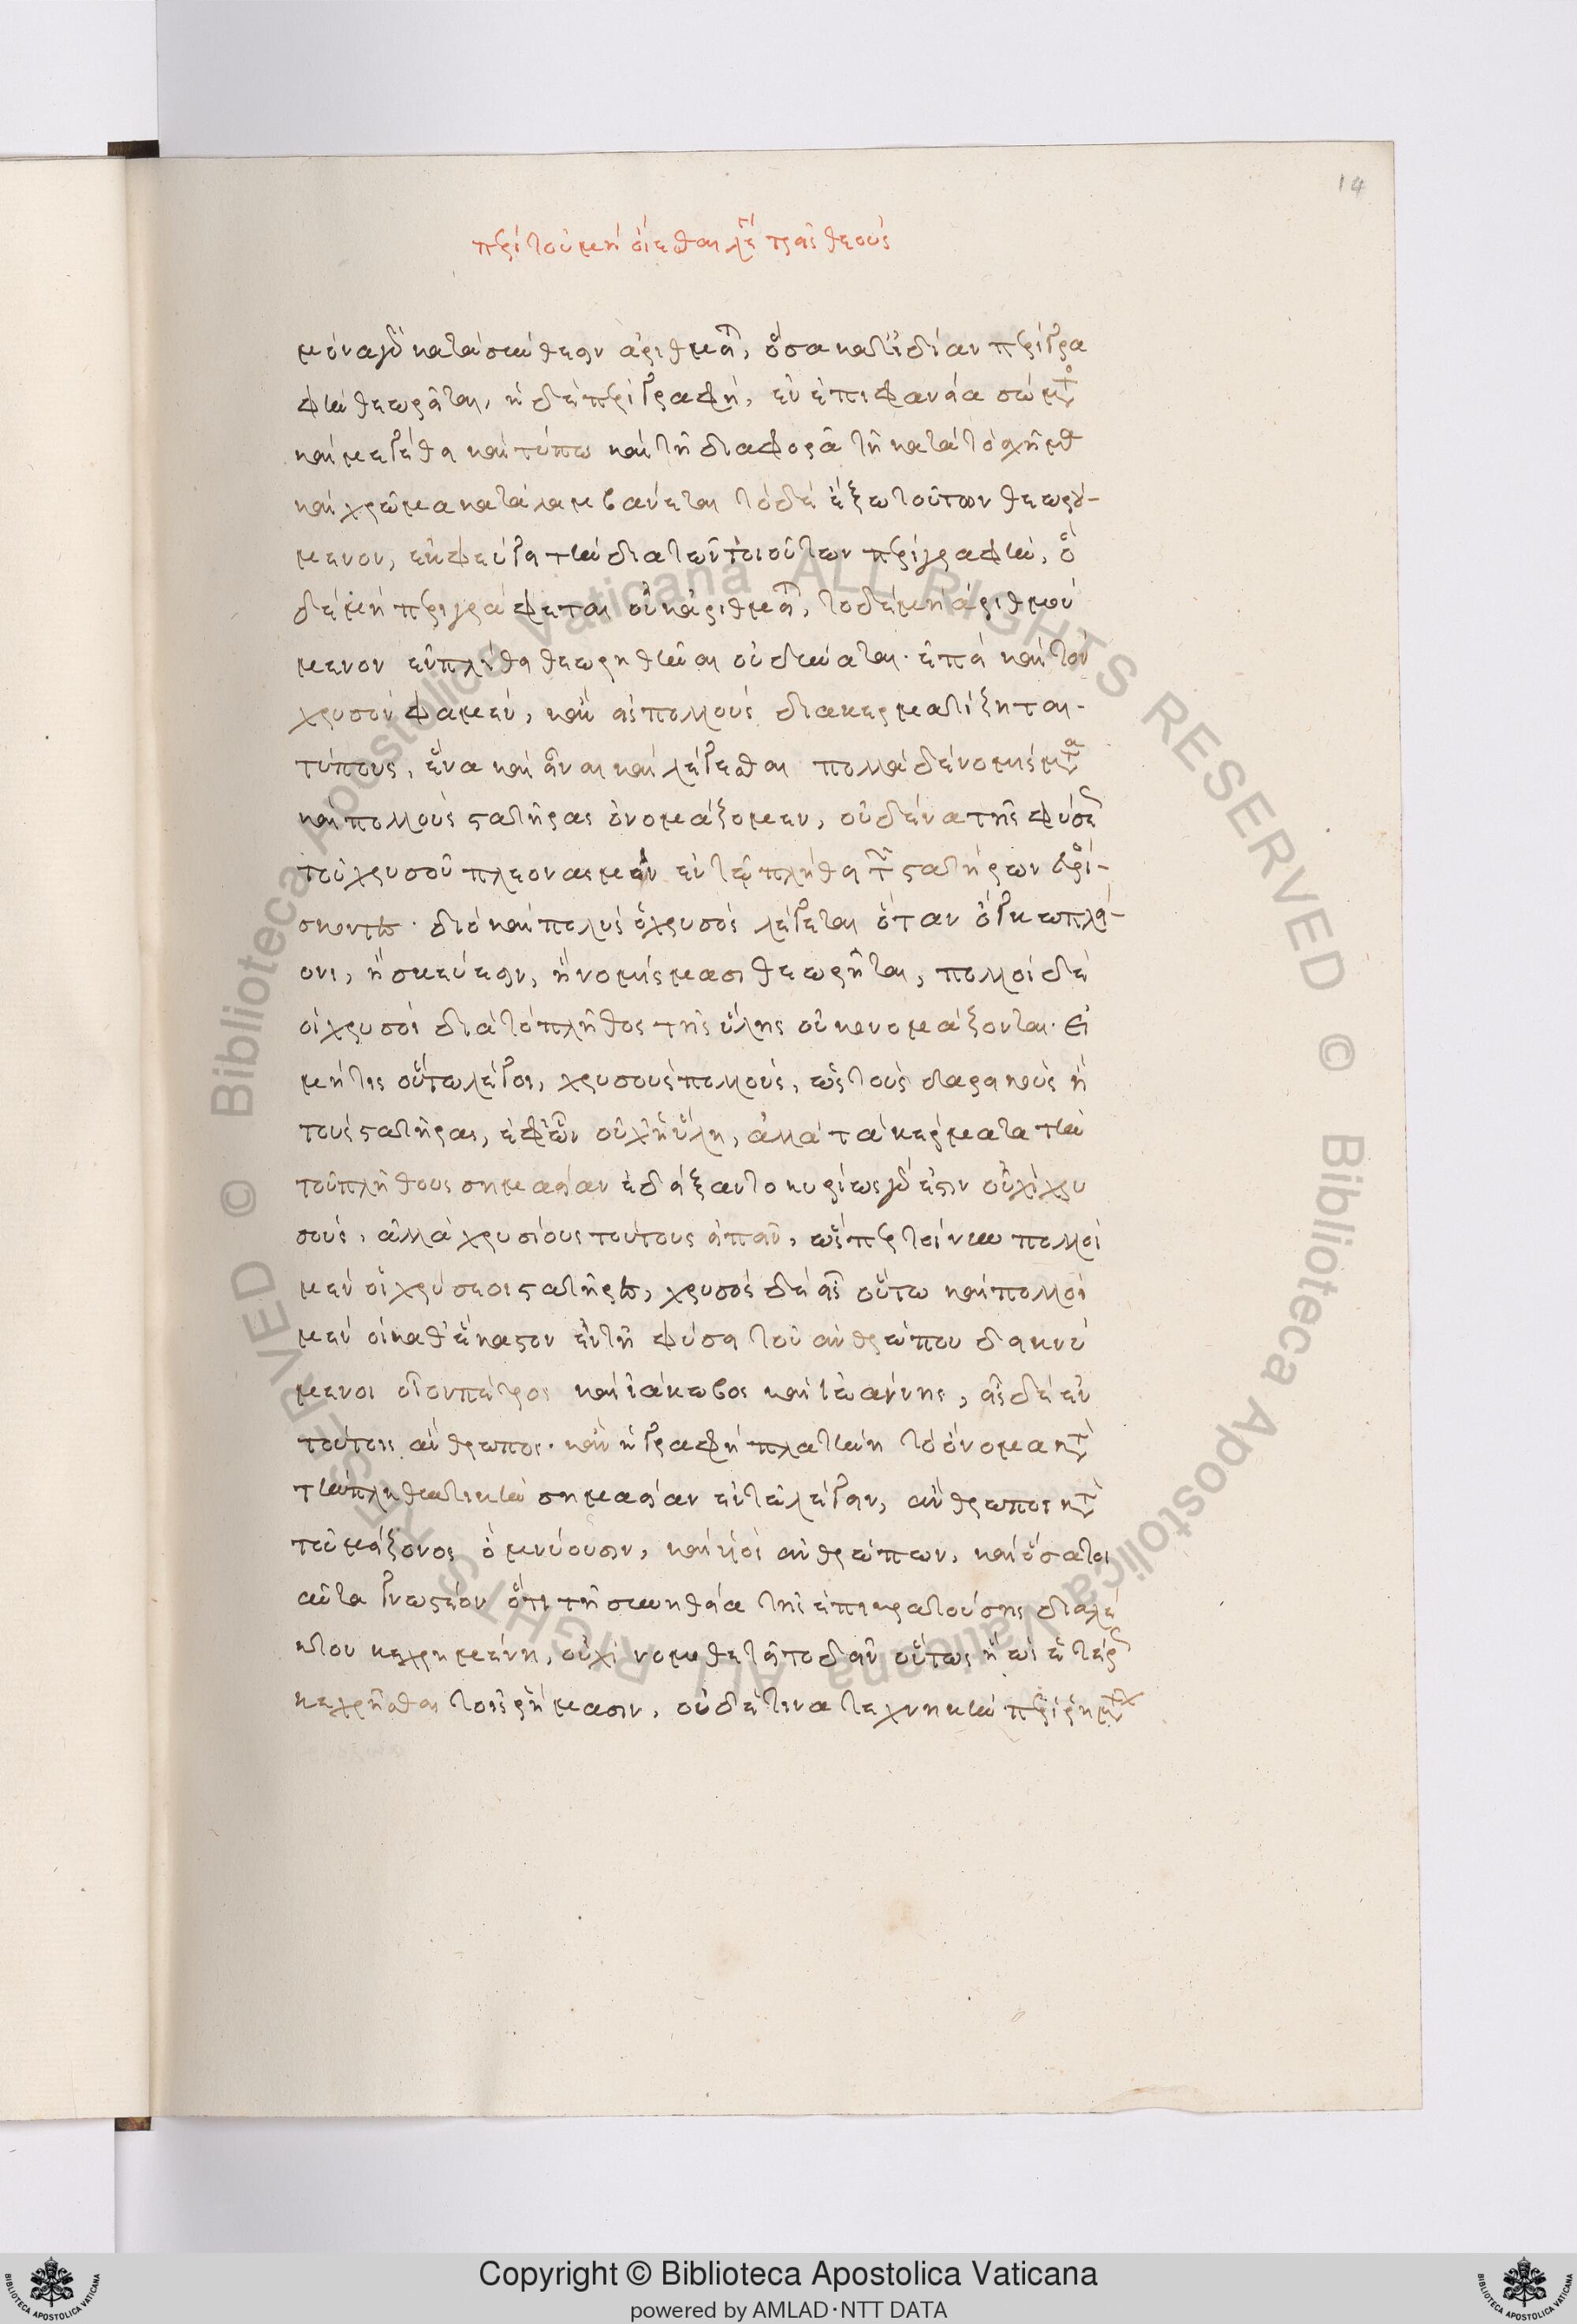 14
περὶ τοῦ μὴ οἴεσθαι λέγειν τρεῖς θεούς
μόνα γὰρ κατὰ σύνθεσιν ἀριθμεῖται, ὅσα κατ' ἰδίαν περιγρα
φὴν θεωρεῖται, ἡ δὲ περιγραφή, ἐν ἐπιφανείᾳ σώματος
καὶ μεγέθει καὶ τόπω καὶ τῆ διαφορᾶ τῆ κατὰ τὸ σχῆμα
καὶ χρῶμα καταλαμβάνεται τὸ δὲ ἔξω τούτων θεωρού-
μενον, ἐκφεύγει τὴν διὰ τῶν τοιούτων περιγραφὴν, ὃ
δὲ μὴ περιγράφεται οὐκ ἀριθμεῖται, τὸ δὲ μὴ ἀριθμού
μενον ἐν πλήθει θεωρηθῆναι οὐ δύναται· ἐπεὶ καὶ τὸν
χρυσόν φαμεν, κἂν εἰς πολλοὺς διακερματίζηται
τύπους, ἕνα καὶ εἶναι καὶ λέγεσθαι πολλὰ δὲ νομίσματα
καὶ πολλοὺς στατῆρας ὀνομάζομεν, οὐδένα τῆς φύσεως
τοῦ χρυσοῦ πλεονασμὸν ἐν τῶ πλήθει τῶν στατήρων εὑρί-
σκοντες· διὸ καὶ πολὺς ὁ χρυσὸς λέγεται ὅταν ἐν ὄγκω πλεί-
ονι, ἢ σκεύεσιν, ἢ νομίσμασι θεωρῆται, πολλοὶ δὲ
οἱ χρυσοὶ διὰ τὸ πλῆθος τῆς ὕλης οὐκ ὀνομάζονται· Εἰ
μή τις οὕτω λέγοι, χρυσοὺς πολλοὺς, ὡς τοὺς δαρεικοὺς ἢ
τοὺς στατῆρας, ἐφ' ὧν οὐχ ἡ ὕλη, ἀλλὰ τὰ κέρματα τὴν
τοῦ πλήθους σημασίαν ἐδέξαντο κυρίως γὰρ ἔστιν οὐχὶ χρυ
σοὺς, ἀλλὰ χρυσίους τούτους εἰπεῖν, ὥσπερ τοίνυν πολλοὶ
μὲν οἱ χρύσεοι στατῆρες, χρυσὸς δὲ εἷς οὕτω καὶ πολλοὶ
μὲν οἱ καθ' ἕκαστον ἐν τῆ φύσει τοῦ ἀνθρώπου δεικνύ
μενοι οἷον πέτρος καὶ ἰάκωβος καὶ ἰωάννης, εἷς δὲ ἐν
τούτοις ἄνθρωπος· κἂν ἡ γραφὴ πλατύνῃ τὸ ὄνομα κατὰ
τὴν πληθυντικὴν σημασίαν ἐν τῶ λέγειν, ἄνθρωποι κατὰ
τοῦ μείζονος ὀμνύουσιν, καὶ υἱοὶ ἀνθρώπων, καὶ ὅσα τοι
αῦτα γνωστέον ὅτι τῆ συνηθείᾳ τῆς ἐπικρατούσης διαλέ
κτου κεχρημένη, οὐχὶ νομοθετεῖ τὸ δεῖν οὕτως ἢ ὡς ἑτέρως
κεχρῆσθαι τοῖς ῥήμασιν, οὐδέ τινα τεχνικὴν περὶ ῥημάτων